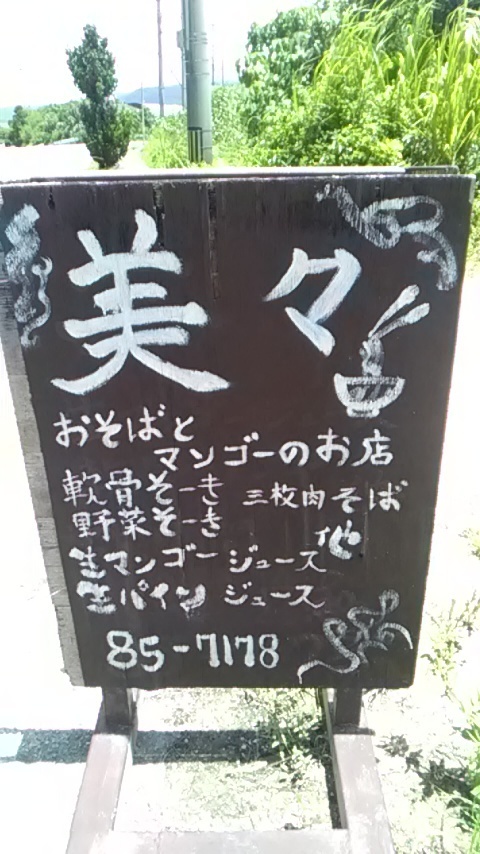 美々
おそばと
マンゴーのお店
軟骨そーき 三枚肉そば
野菜そーき 他
生マンゴー ジュース
生パイン ジュース
85-7178